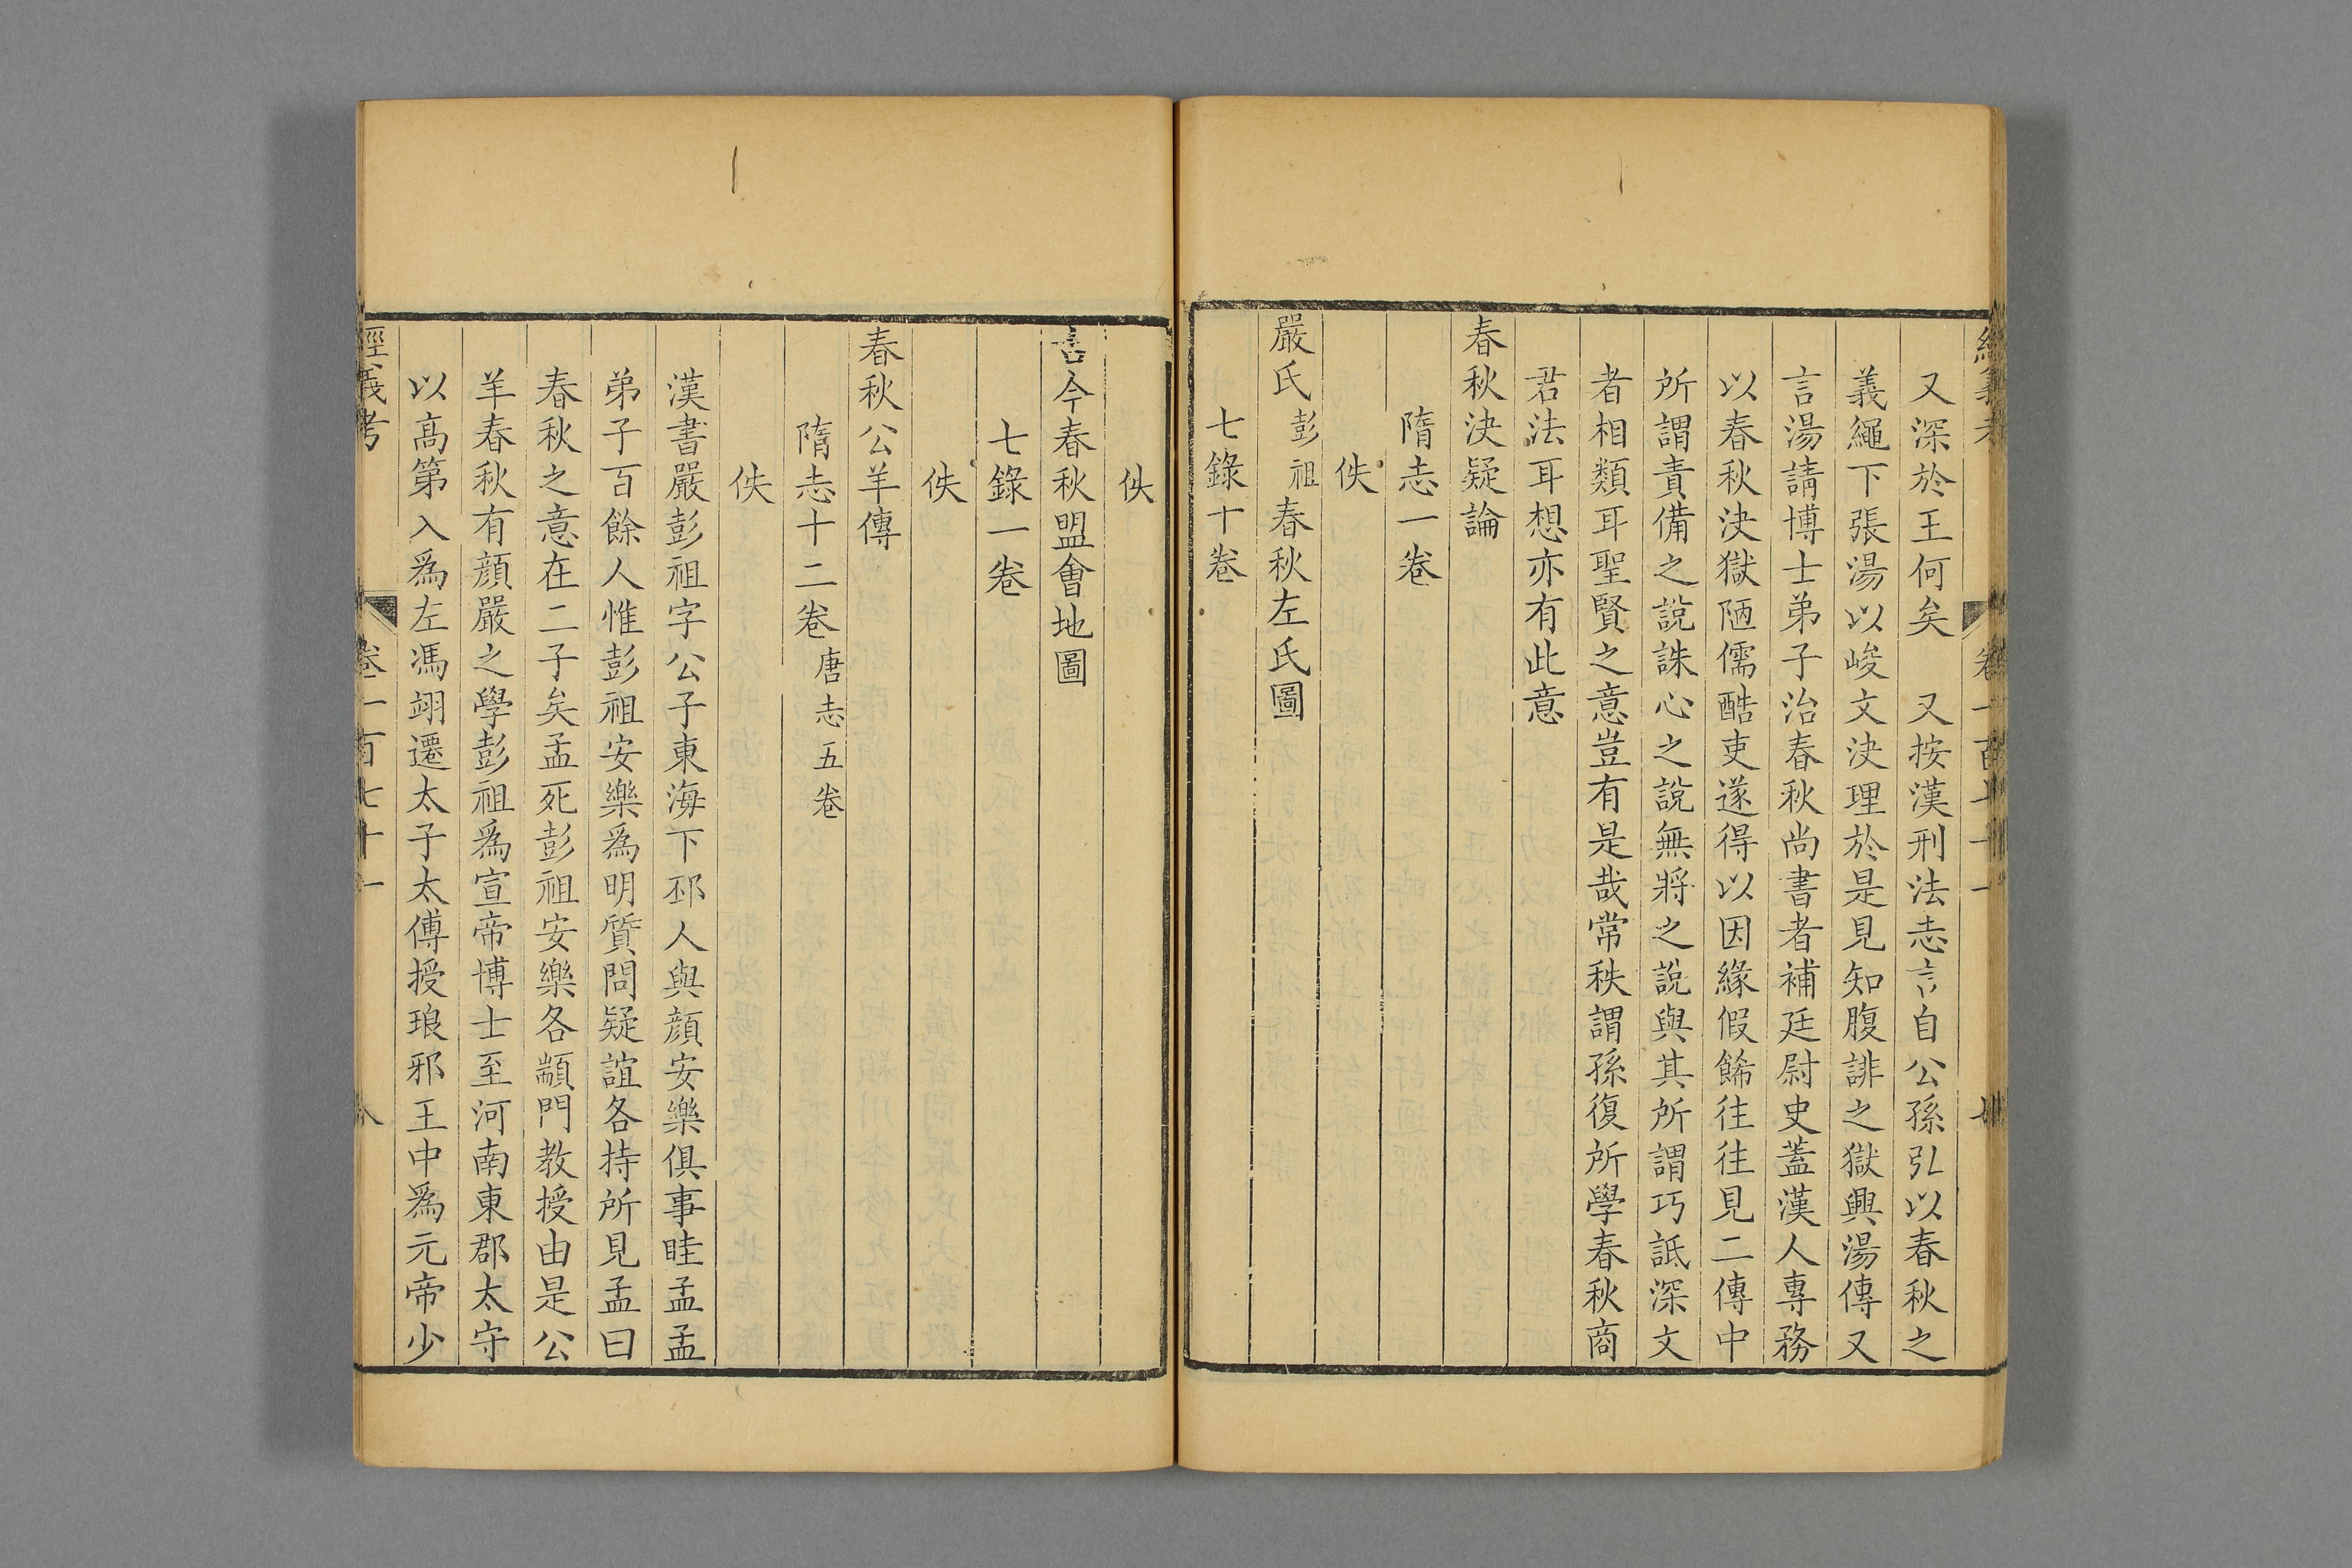 又深於王何矣　又按漢刑法志言自公孫弘以春秋之
義繩下張湯以峻文決理於是見知腹誹之獄興湯傳又
言湯請博士弟子治春秋尚書者補廷尉史蓋漢人專務
以春秋決獄陋儒酷吏遂得以因緣假飾往往見二傳中
所謂責備之說誅心之說無將之說與其所謂巧詆深文
者相類耳聖賢之意豈有是哉常秩謂孫復所學春秋商
君法耳想亦有此意
春秋決疑論
隋志一卷
佚
嚴氏彭祖春秋左氏圖
七錄十卷
佚
古今春秋盟會地圖
七錄一卷
佚
春秋公羊傳
隋志十二卷唐志五卷
佚
漢書嚴彭祖字公子東海下邳人與顏安樂俱事眭孟孟
弟子百餘人惟彭祖安樂為明質問疑誼各持所見孟曰
春秋之意在二子矣孟死彭祖安樂各顓門教授由是公
羊春秋有顏嚴之學彭祖為宣帝博士至河南東郡太守
以高第入為左馮翊遷太子太傅授琅邪王中為元帝少
經義考　卷一百七十一　八